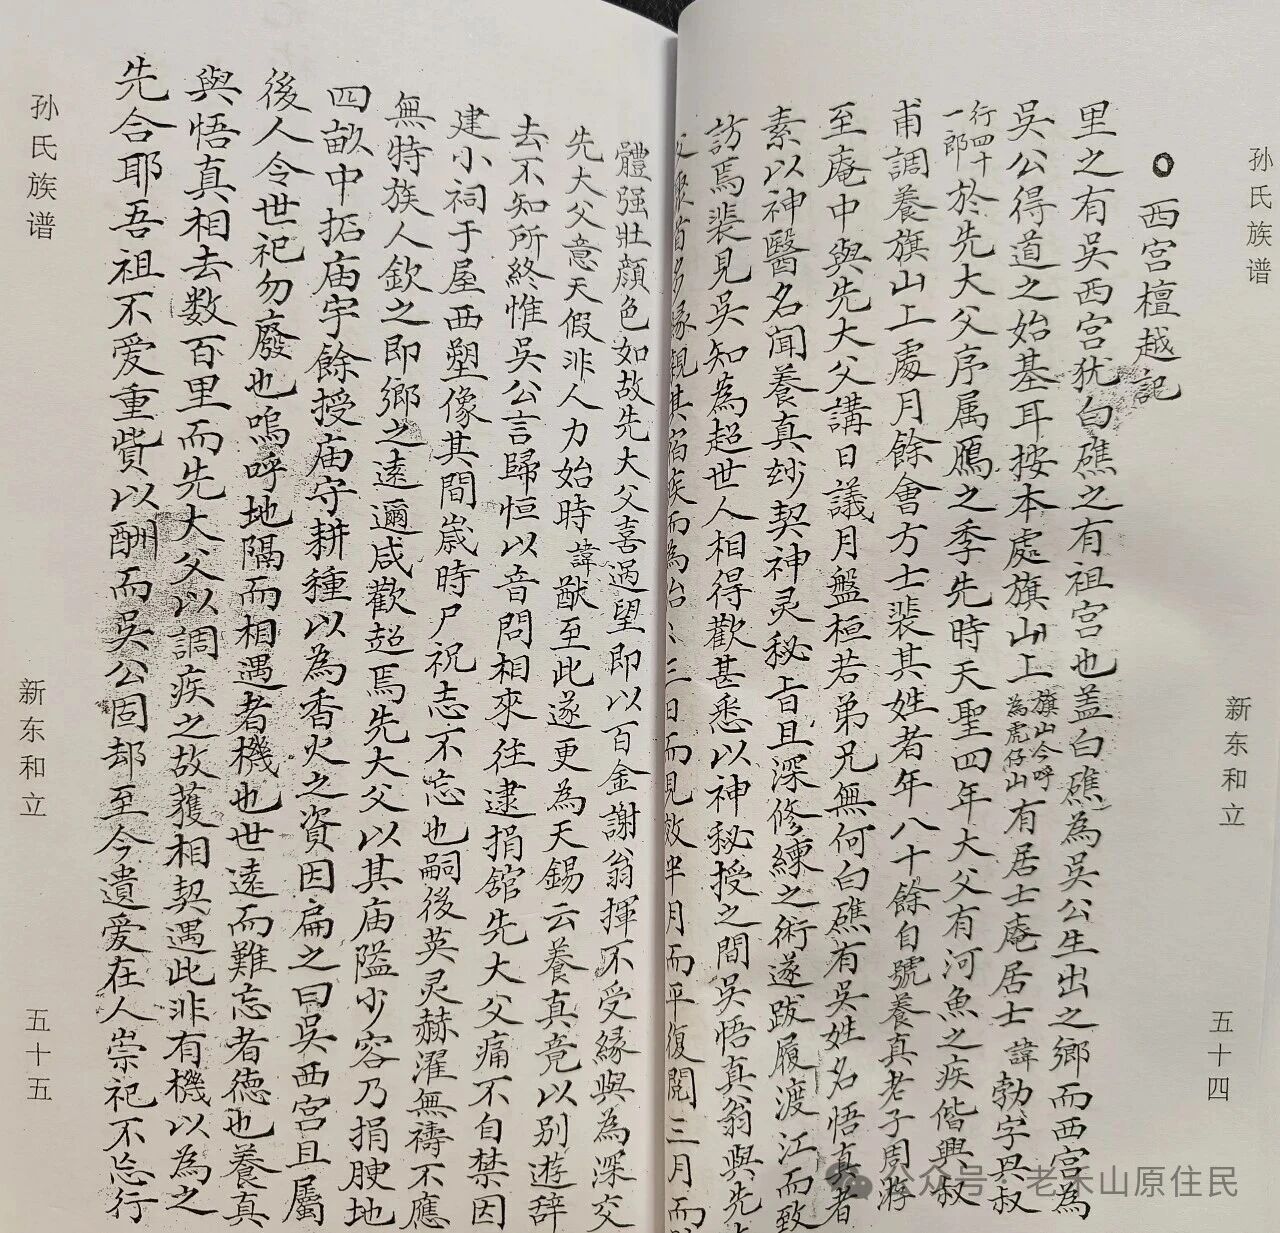 孙氏族谱
新东和立
五十四
西宫檀越記
里之有吳西宫犹白礁之有祖宫也盖白礁為吳公生出之鄉而西宫為
吳公得道之始基耳按本處旗山上旗山今呼為虎仔山有居士庵居士諱勃字毋叔
行四十一郎於先大父序属鴈之季先時天聖四年大父有河魚之疾偕興叔
甫調養旗山上處月餘會方士裴其姓者年八十餘自號養真老子周游
至庵中與先大父講日議月盤桓若弟兄無何白礁有吳姓名悟真者
素以神醫名闻養真玅契神灵秘旨且深修練之術遂跋履渡江而致
訪焉裴見吳知為超世人相得歡甚悉以神秘授之間吳悟真翁與先
親其宿疾而為治三日而見效半月而平復閲三月而
體强壯顔色如故先大父喜過望即以百金謝翁揮不受緣與為深交
先大父意天假非人力始時諱猷至此遂更為天錫云養真竟以别遊辞
去不知所終惟吳公言歸恒以音問相來往逮捐舘先大父痛不自禁因
建小祠于屋西塑像其間嵗時尸祝志不忘也嗣後英灵赫濯無禱不應
無特族人欽之即鄉之遠邇咸歡趋焉先大父以其庙隘少容乃捐腴地
四畝中拓庙宇餘授庙守耕種以為香火之資因扁之曰吳西宫且屬
後人令世祀勿廢也嗚呼地隔而相遇者機也世遠而難忘者德也養真
與悟真相去数百里而先大父以調疾之故獲相契遇此非有機以為之
先合耶吾祖不爱重貲以酬而吳公固却至今遺爱在人崇祀不忘行
孙氏族谱
新东和立
五十五
公众号·老禾山原住民